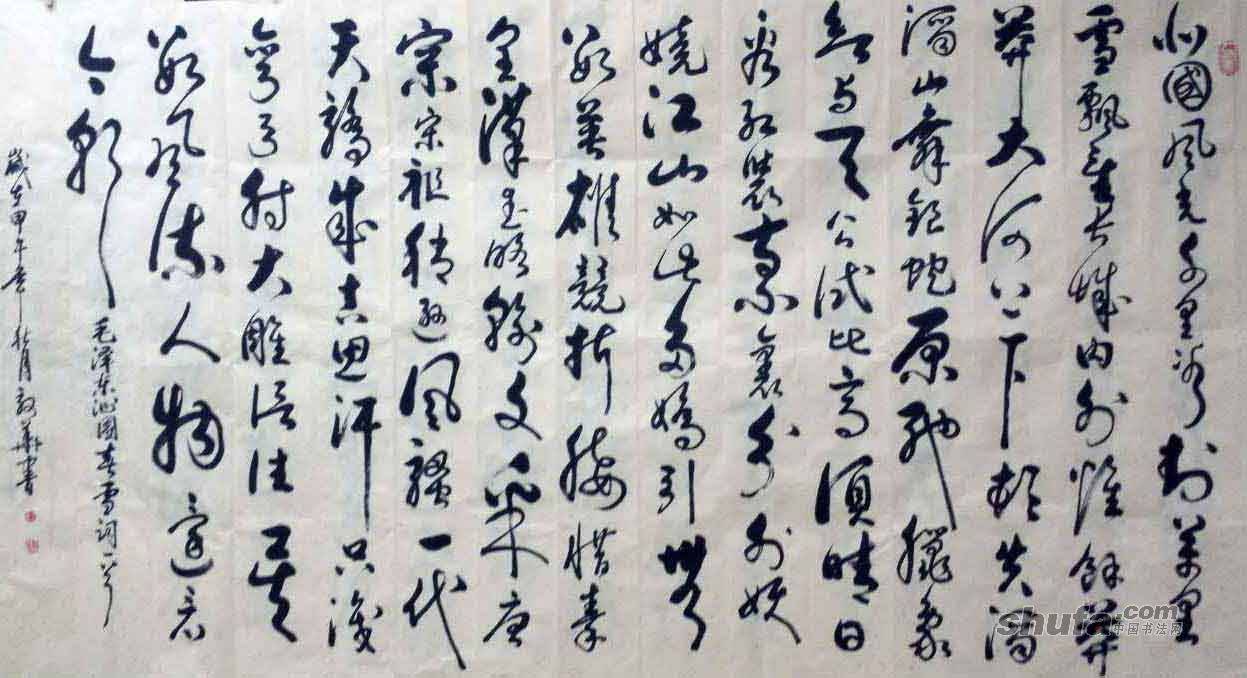 北國風光千里冰封萬里
雪飄望長城内外惟餘莽
莽大河上下頓失滔
滔山舞銀蛇原馳蠟象
欲與天公試比高須晴日
看紅裝素裹分外妖
嬈江山如此多嬌引無
數英雄競折腰惜秦
皇漢武略輸文采唐
宗宋祖稍遜風騷一代
天驕成吉思汗只識
彎弓射大雕俱往矣
數風流人物還看
今朝
毛泽东沁園春雪詞一首
歲在甲午年秋月華書
shufa.com
中国书法网